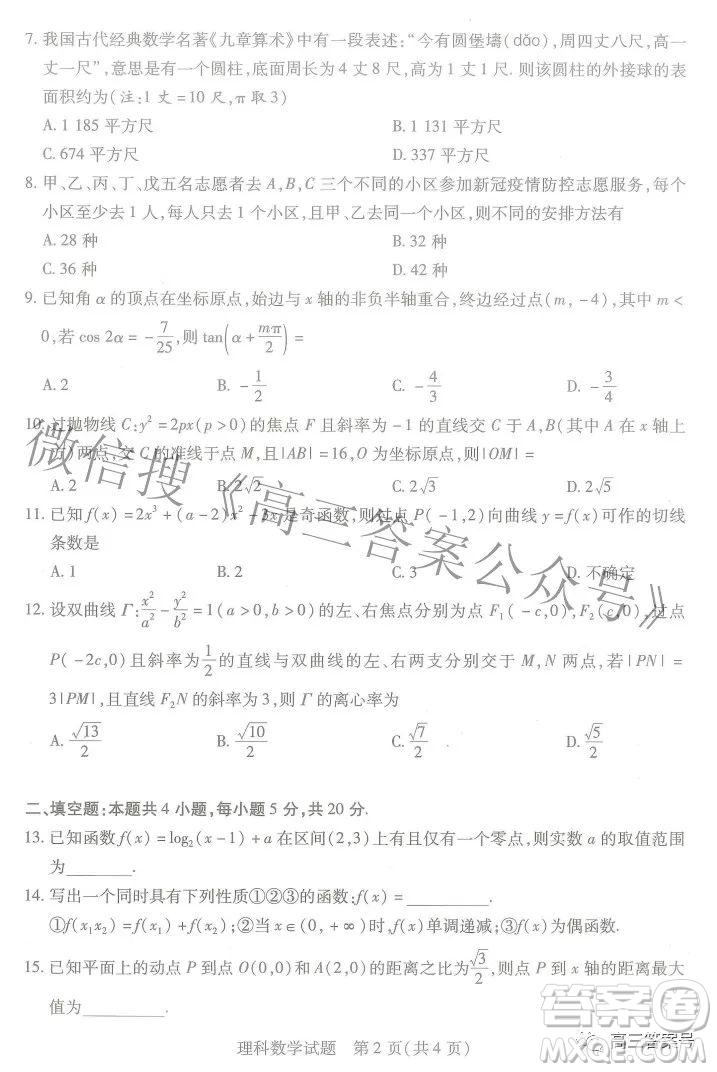 7. 我国古代经典数学名著《九章算术》中有一段表述:“今有圆堡壔(dǎo),周四丈八尺,高一
丈一尺”,意思是有一个圆柱,底面周长为4丈8尺,高为1丈1尺. 则该圆柱的外接球的表
面积约为(注:1丈=10尺,π取3)
A. 1 185 平方尺 B. 1 131 平方尺
C. 674 平方尺 D. 337 平方尺
8. 甲、乙、丙、丁、戊五名志愿者去A,B,C三个不同的小区参加新冠疫情防控志愿服务,每个
小区至少去1人,每人只去一个小区,且甲、乙去同一个小区,则不同的安排方法有
A. 28 种 B. 32 种
C. 36 种 D. 42 种
9. 已知角α的顶点在坐标原点,始边与x轴的非负半轴重合,终边经过点(m,-4),其中m<
0,若cos 2α=-7/25,则tan(α+mπ/2)=
A. 2 B. -1/2 C. -4/3 D. -3/4
10. 过抛物线C:y²=2px(p>0)的焦点F且斜率为-1的直线交C于A,B(其中A在x轴上
方)两点,交C的准线于点M,且|AB|=16,O为坐标原点,则|OM|=
A. 2 B. 2√2 C. 2√3 D. 2√5
11. 已知f(x)=2x³+(a-2)x²-3x是奇函数,则过点P(-1,2)向曲线y=f(x)可作的切线
条数是
A. 1 B. 2 C. 3 D. 不确定
12. 设双曲线Γ:x²/a²-y²/b²=1(a>0,b>0)的左、右焦点分别为点F₁(-c,0),F₂(c,0),过点
P(-2c,0)且斜率为1/2的直线与双曲线的左、右两支分别交于M,N两点,若|PN|=
3|PM|,且直线F₂N的斜率为3,则Γ的离心率为
A. √13/2 B. √10/2 C. √7/2 D. √5/2
二、填空题:本题共4小题,每小题5分,共20分.
13. 已知函数f(x)=log₂(x-1)+a在区间(2,3)上有且仅有一个零点,则实数a的取值范围
为________.
14. 写出一个同时具有下列性质①②③的函数:f(x)=________.
①f(x₁x₂)=f(x₁)+f(x₂);②当x∈(0,+∞)时,f(x)单调递减;③f(x)为偶函数.
15. 已知平面上的动点P到点O(0,0)和A(2,0)的距离之比为√3/2,则点P到x轴的距离最大
值为________.
理科数学试题 第2页(共4页)
微信搜《高三答案公众号》
答案卷
高三答案号
MXQE.COM